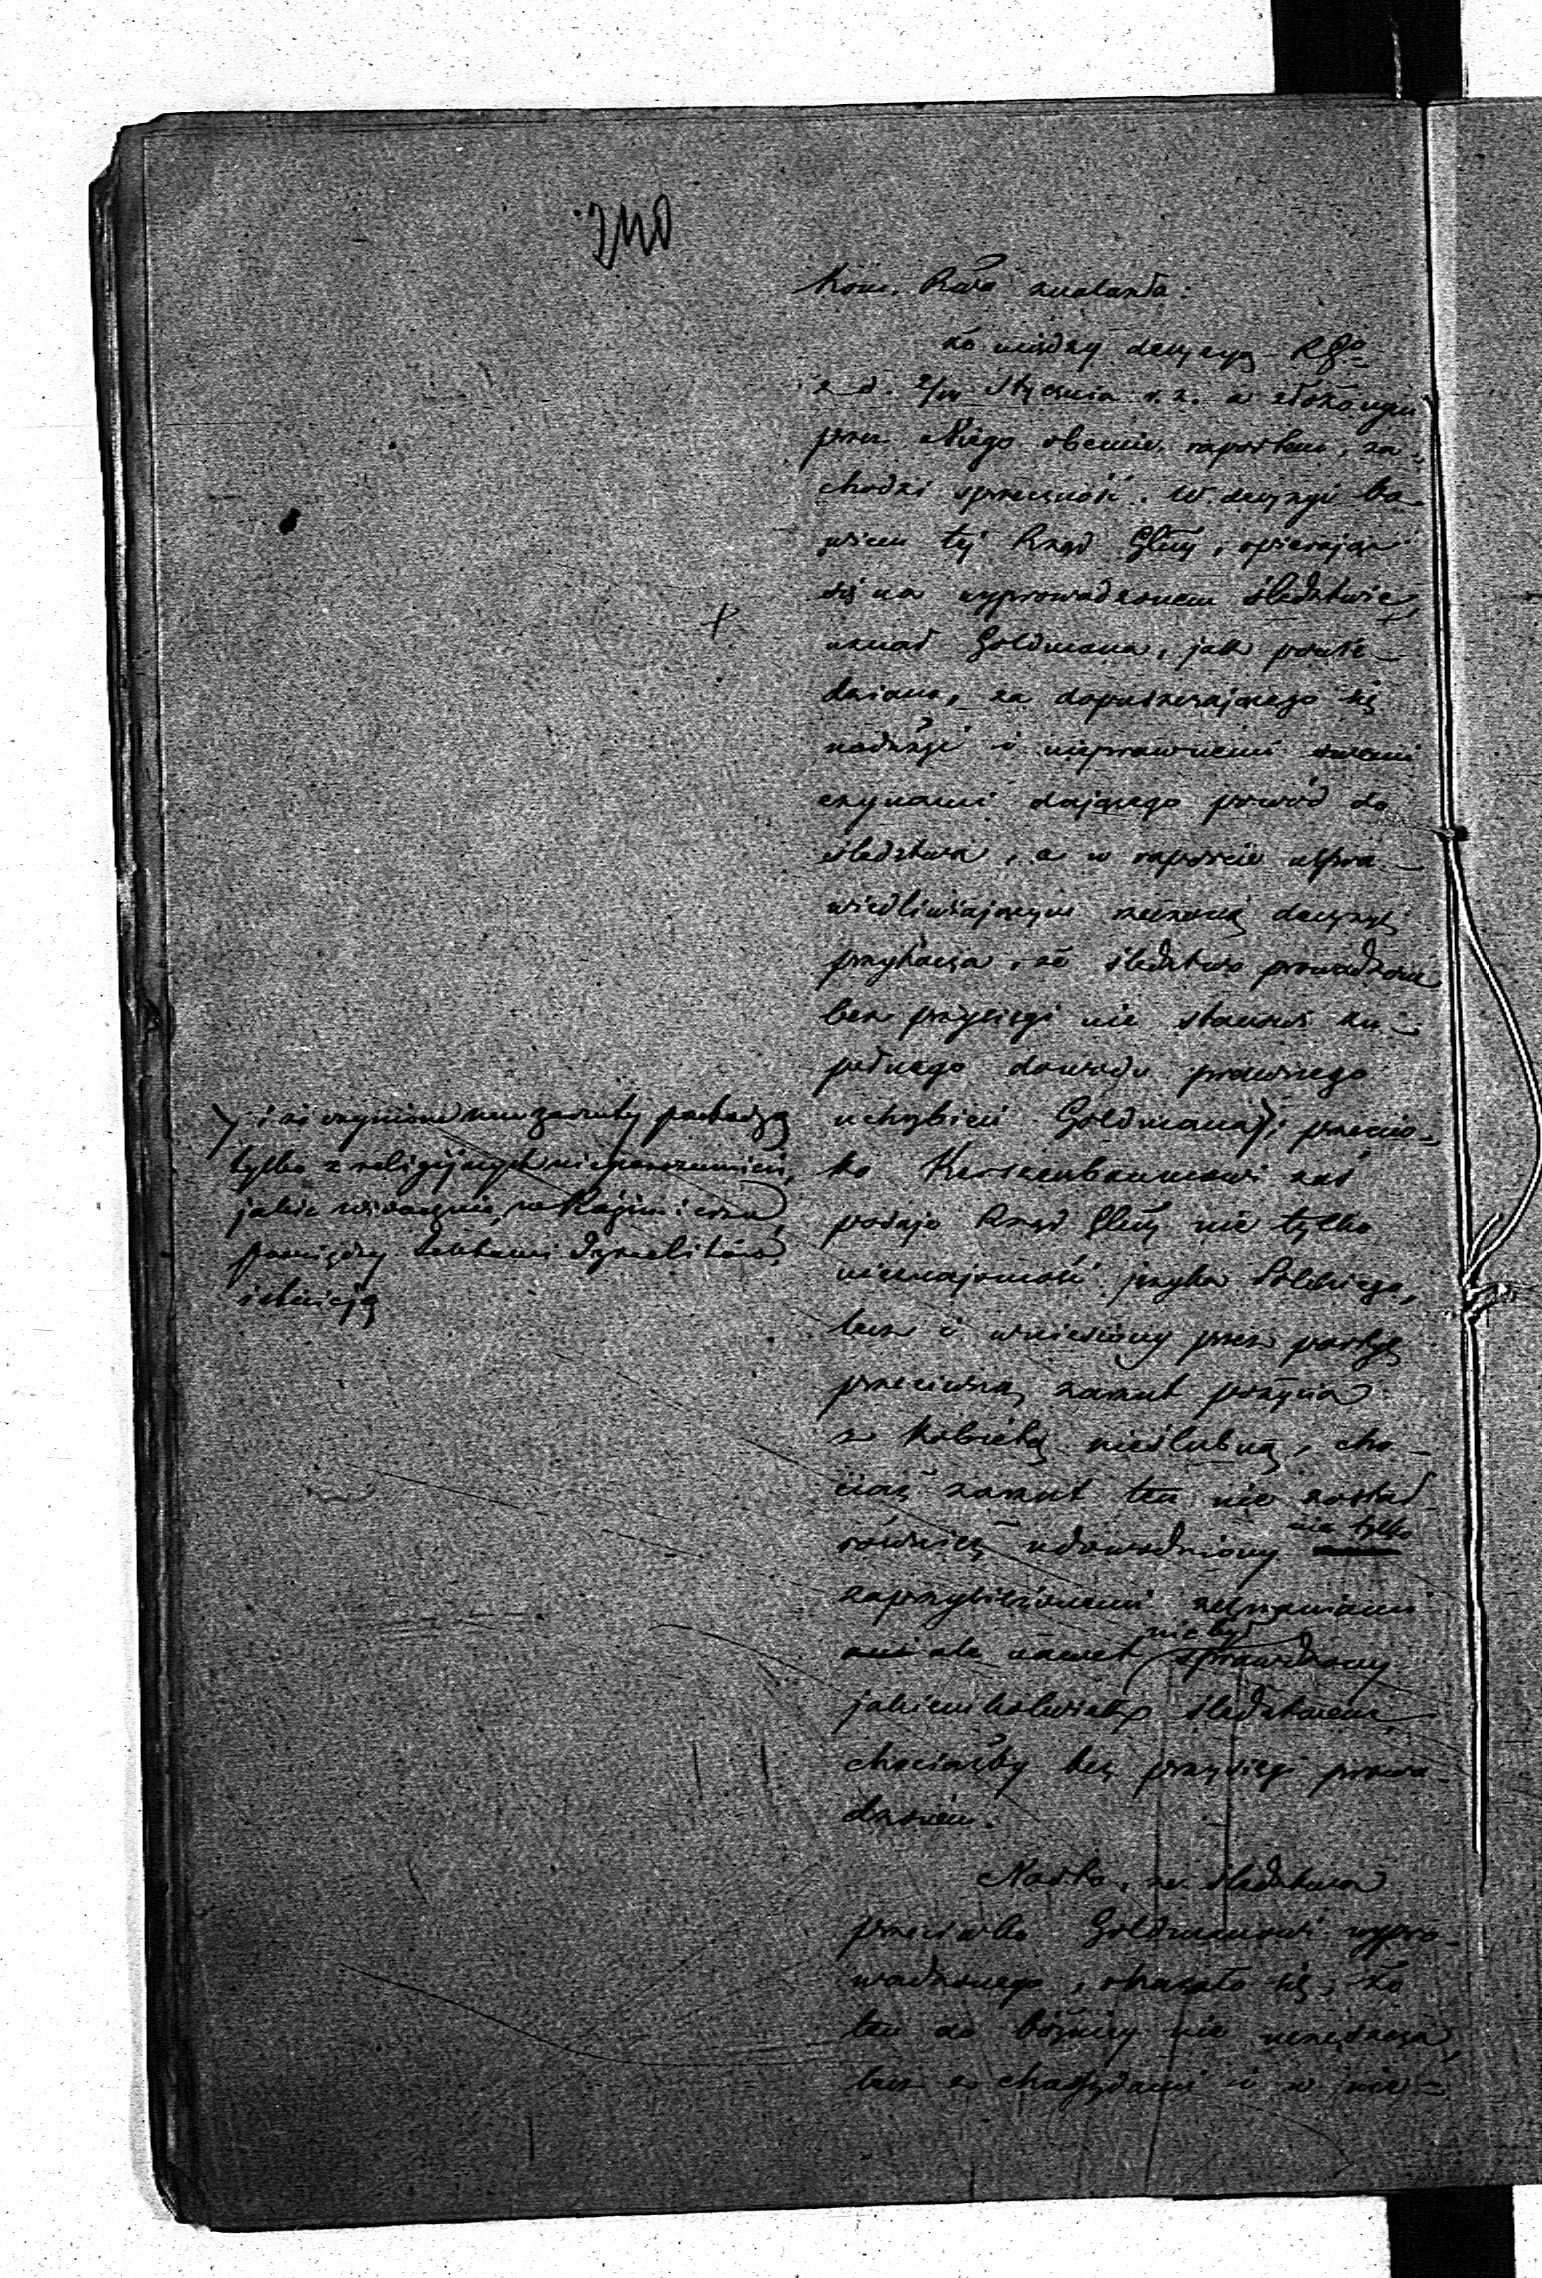 240
Kom. Rwa znalazła:
że między decyzyą RGo
z d. 2/14 Stycznia r. z. a złożonym
przez Niego obecnie raportem, za-
chodzi sprzeczność. W decyzyi bo-
wiem tej Rząd Glny, opierając
się na wyprowadzonem śledztwie,
uznał Goldmana, jak powie-
dziano, za dopuszczającego się
nadużyć i nieprawnemi swemi
czynami dającego powód do
śledztwa, a w raporcie uspra-
wiedliwiającym decyzyę
przytacza, że śledztwo prowadzone
bez przysięgi nie stanowi zu-
pełnego dowodu prawnego
uchybień Goldmana; przeciw-
ko Kerszenbaumowi zaś
podaje Rząd Glny nie tylko
nieznajomość języka Polskiego,
lecz i wniesiony przez partyę
przeciwną zarzut pożycia
z kobietą nieślubną, cho-
ciaż zarzut ten nie został
również udowodniony nie tylko
zaprzysiężonemi zeznaniami
ale nawet nie był sprawdzony
jakiemkolwiek śledztwem,
chociażby bez przysięgi prowa-
dzonem.
Nadto, ze śledztwa
przeciwko Goldmanowi wypro-
wadzonego, okazało się, że
ten do bóżnicy nie uczęszcza,
lecz z chassydami i w nie-
i że czynione mu zarzuty pochodzą
tylko z religijnych nieporozumień,
jakie widocznie, w Kazimierzu,
pomiędzy sektami Izraelitów
istnieją